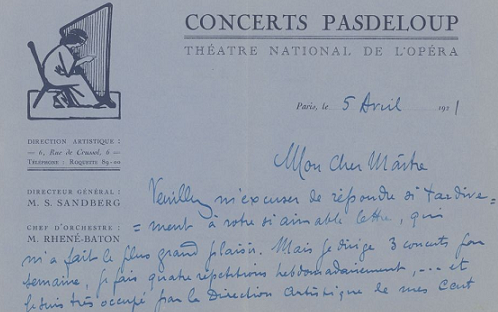 CONCERTS PASDELOUP
THÉATRE NATIONAL DE L'OPÉRA
Paris, le 5 Avril 1921
DIRECTION ARTISTIQUE :
— 6, Rue de Crussol, 6 —
TÉLÉPHONE : ROQUETTE 89-00
DIRECTEUR GÉNÉRAL :
M. S. SANDBERG
CHEF D'ORCHESTRE :
M. RHENÉ-BATON
Mon cher Maître
Veuillez m'excuser de répondre si tardive=
=ment à votre si aimable lettre, qui
m'a fait le plus grand plaisir. Mais je dirige 3 concerts par
semaine, je fais quatre répétitions hebdomadairement, ... et
je suis très occupé par la Direction Artistique de mes